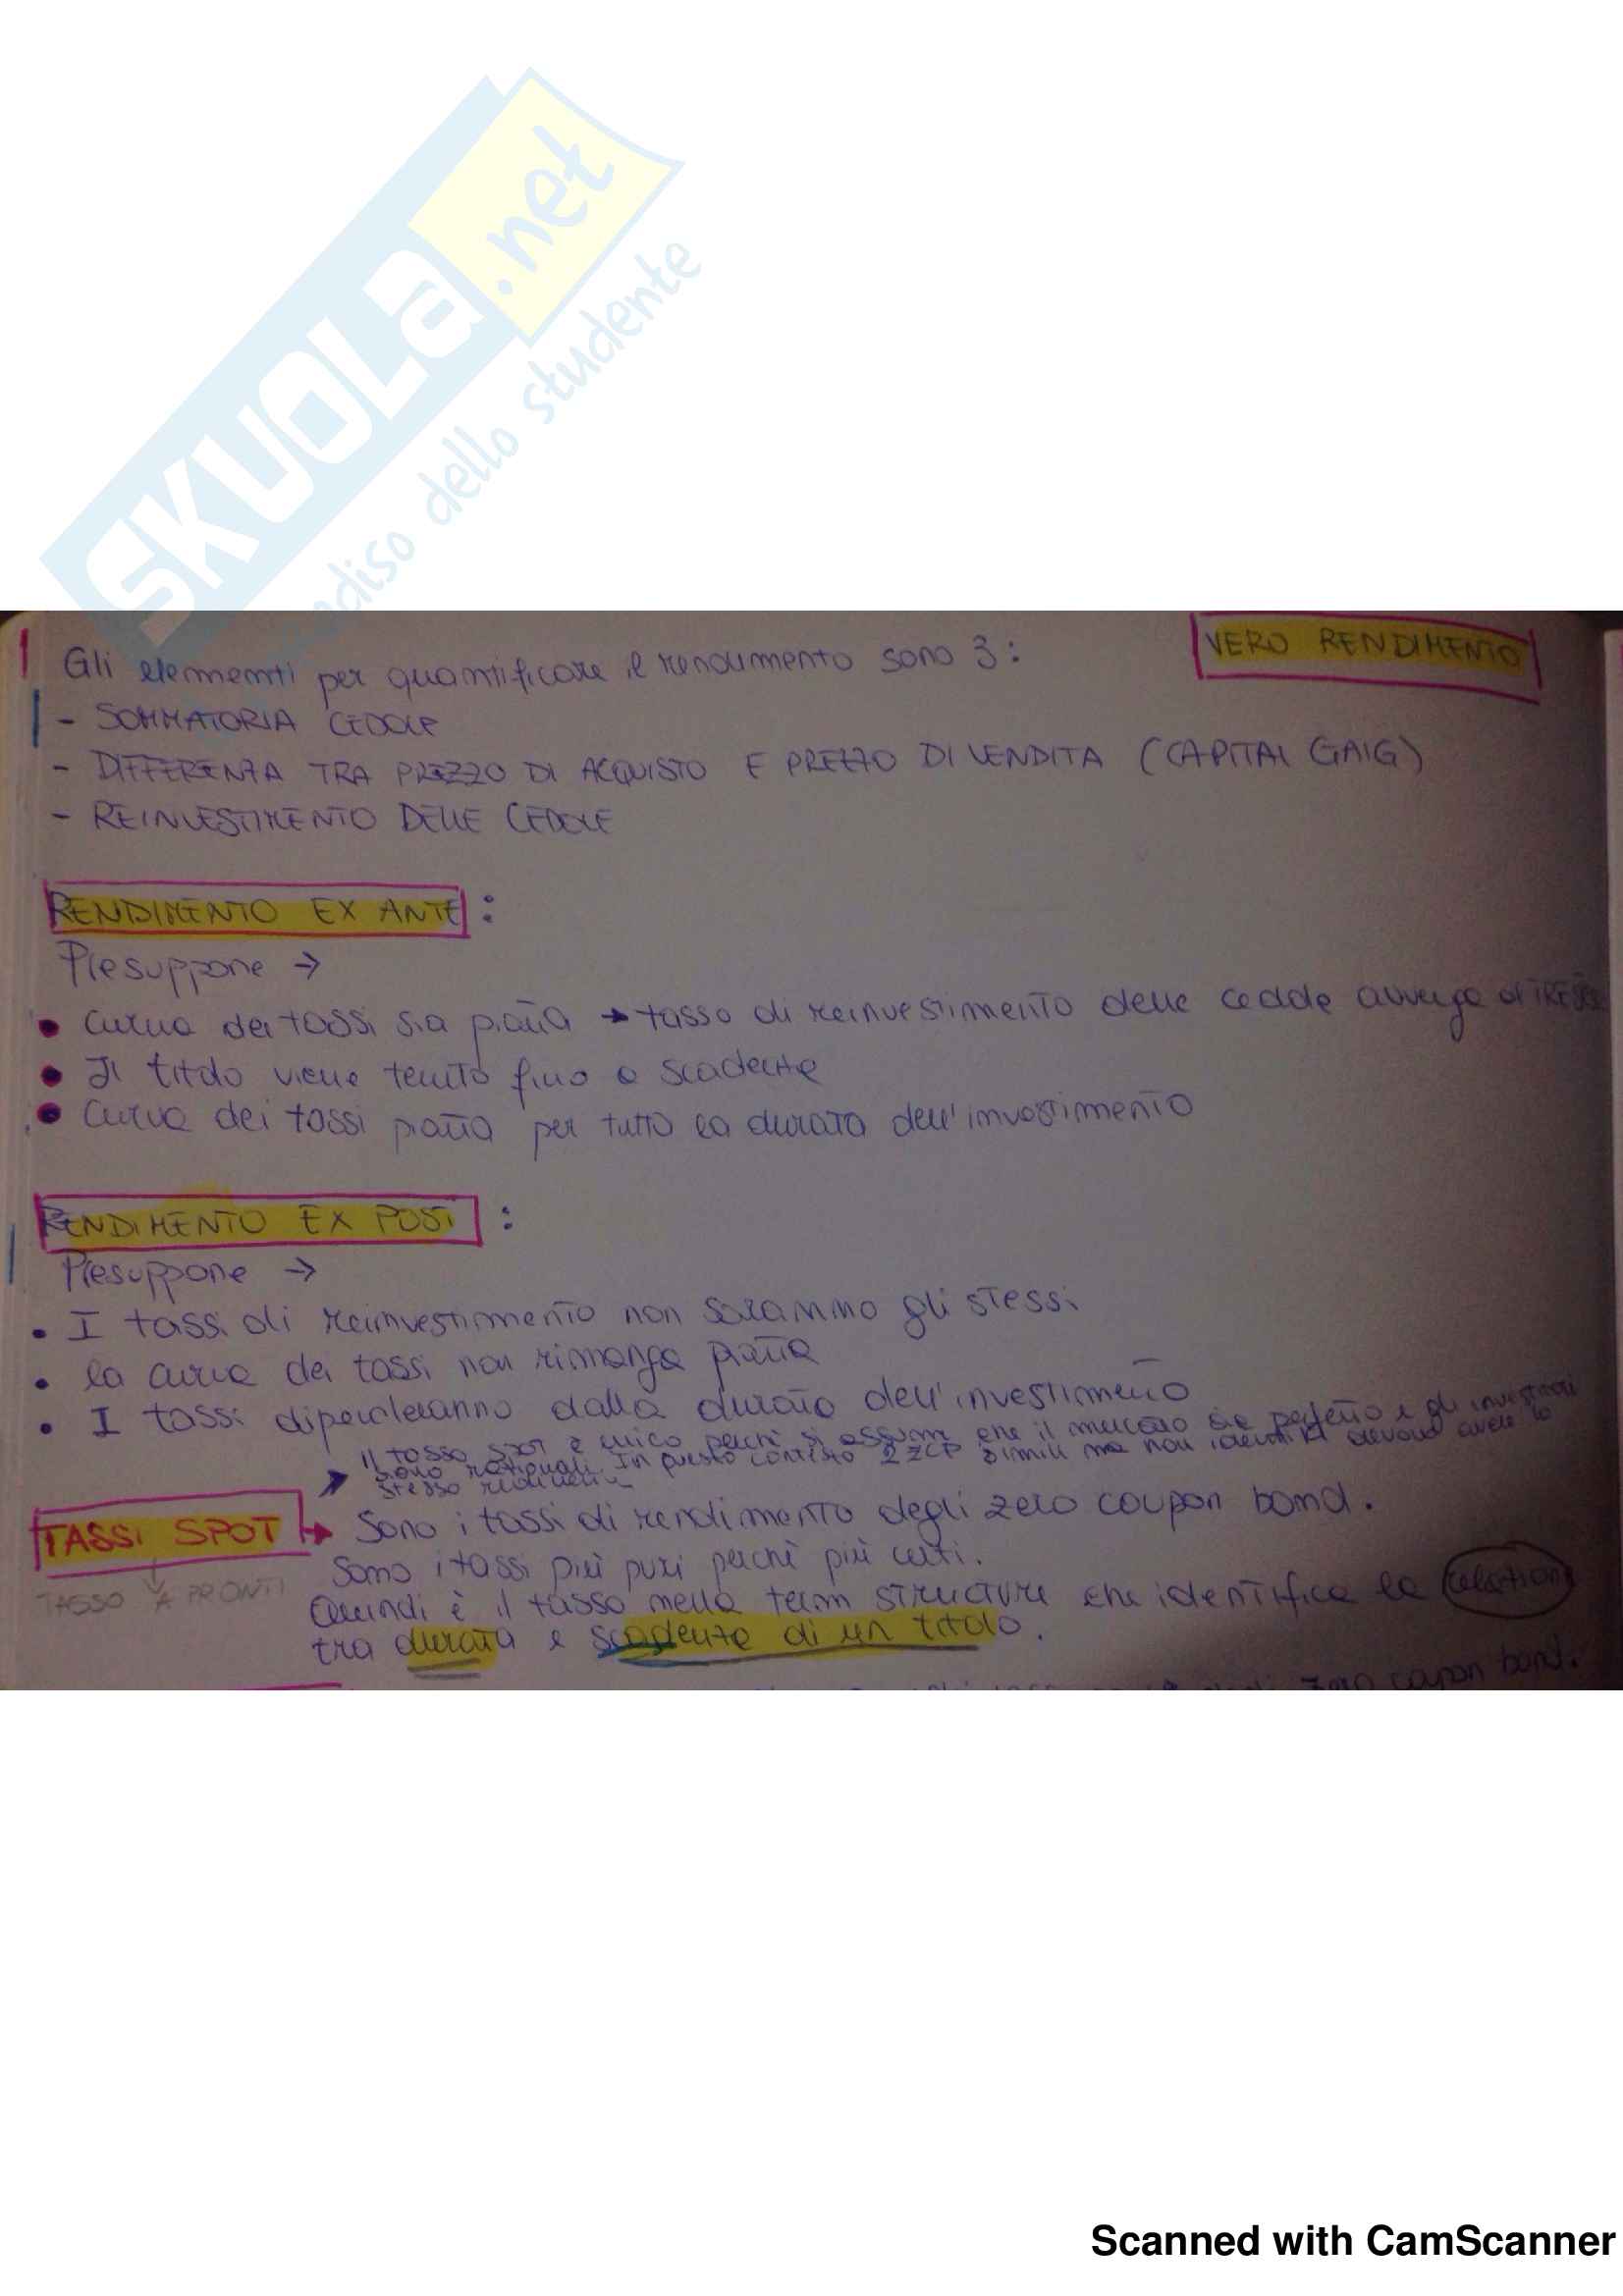 SKUOLA.net
diso dello studente
VERO RENDIMENTO
Gli elementi per quantificare il rendimento sono 3:
- SOMMATORIA CEDOLE
- DIFFERENZA TRA PREZZO DI ACQUISTO E PREZZO DI VENDITA (CAPITAL GAIG)
- REINVESTIMENTO DELLE CEDOLE
RENDIMENTO EX ANTE:
Presuppone →
• Curva dei tassi sia piatta → tasso di reinvestimento delle cedole avvenga al TRES
• Il titolo viene tenuto fino a scadenza
• Curva dei tassi piatta per tutto la durata dell'investimento
RENDIMENTO EX POST:
Presuppone →
• I tassi di reinvestimento non saranno gli stessi
• la curva dei tassi non rimanga piatta
• I tassi dipenderanno dalla durata dell'investimento
Il tasso spot è unico perchè si assume che il mercato sia perfetto e gli investitori
sono razionali. In questo contesto 2 ZCB simili ma non identici devono avere lo
stesso rendimento
TASSI SPOT → Sono i tassi di rendimento degli zero coupon bond.
Sono i tassi più puri perchè più certi.
TASSO A PRONTI
Quindi è il tasso nella term structure che identifica la relazione
tra durata e scadenza di un titolo.
zero coupon bond.
Scanned with CamScanner